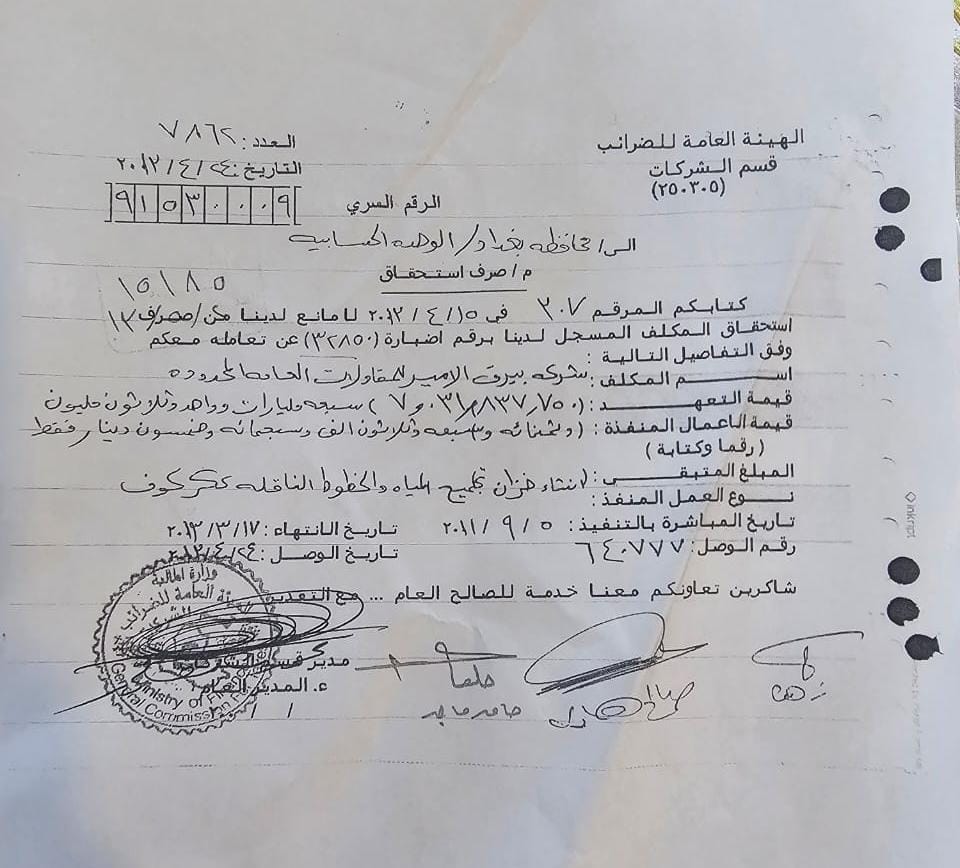 الهيئة العامة للضرائب
قسم الشركات
(٢٥٠٣٠٥)
العدد: ٧٨٦٢
التاريخ: ٢٤/٤/٢٠١٢
الرقم السري ٩١٥٣٠٠٠٩
الى/ محافظه بغداد/ الوحده الحسابيه
م/ صرف استحقاق
١٥١٨٥
كتابكم المرقم ٣٠٧ في ١٥/٤/٢٠١٢ لامانع لدينا من/صرف
استحقاق المكلف المسجل لدينا برقم اضبارة (٣٢٨٥٠) عن تعامله معكم
وفق التفاصيل التالية:
اسم المكلف: شركه بيرق الامير للمقاولات العامه المحدوده
قيمة التعهد: (٧,٠٣١,٨٣٧,٧٥٠) سبعه مليارات وواحد وثلاثون مليون
قيمة الاعمال المنفذة: (وثمنمائه وسبعه وثلاثون الف وسبعمائه وخمسون دينار فقط
(رقما وكتابة)
المبلغ المتبقي: (انشاء خزان تجميع المياه والخطوط الناقله عكركوف
نوع العمل المنفذ:
تاريخ المباشرة بالتنفيذ: ٥/٩/٢٠١١ تاريخ الانتهاء: ١٧/٣/٢٠١٣
رقم الوصل: ٦٤٠٧٧٧ تاريخ الوصل: ٢٤/٤/٢٠١٢
شاكرين تعاونكم معنا خدمة للصالح العام ... مع التقدير
مدير قسم الشركات
ء. المدير العام
/ /
حامد ماجد
وزارة المالية
الهيئة العامة للضرائب
Ministry of
General Commission